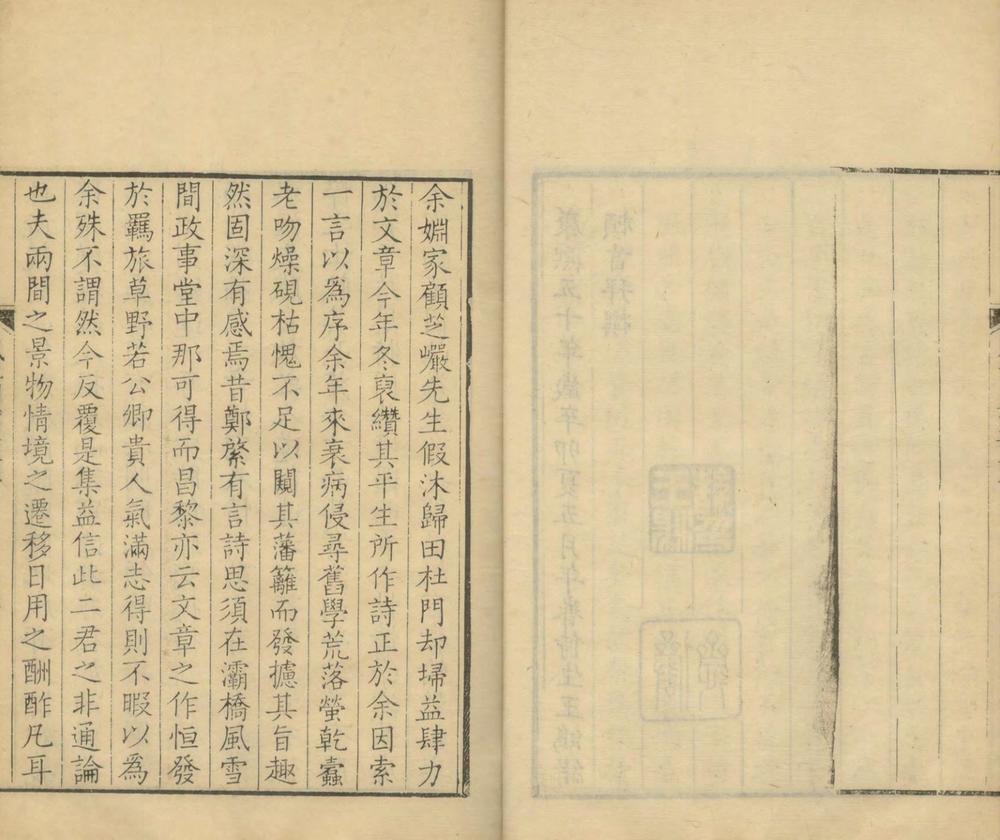 余姻家顧芝巗先生假沐歸田杜門却埽益肆力
於文章今年冬裒纘其平生所作詩正於余因索
一言以爲序余年來衰病侵尋舊學荒落螢乾蠧
老吻燥硯枯愧不足以闚其藩籬而發攄其旨趣
然固深有感焉昔鄭綮有言詩思須在灞橋風雪
間政事堂中那可得而昌黎亦云文章之作恒發
於羈旅草野若公卿貴人氣滿志得則不暇以為
余殊不謂然今反覆是集益信此二君之非通論
也夫兩間之景物情境之遷移日用之酬酢凡耳